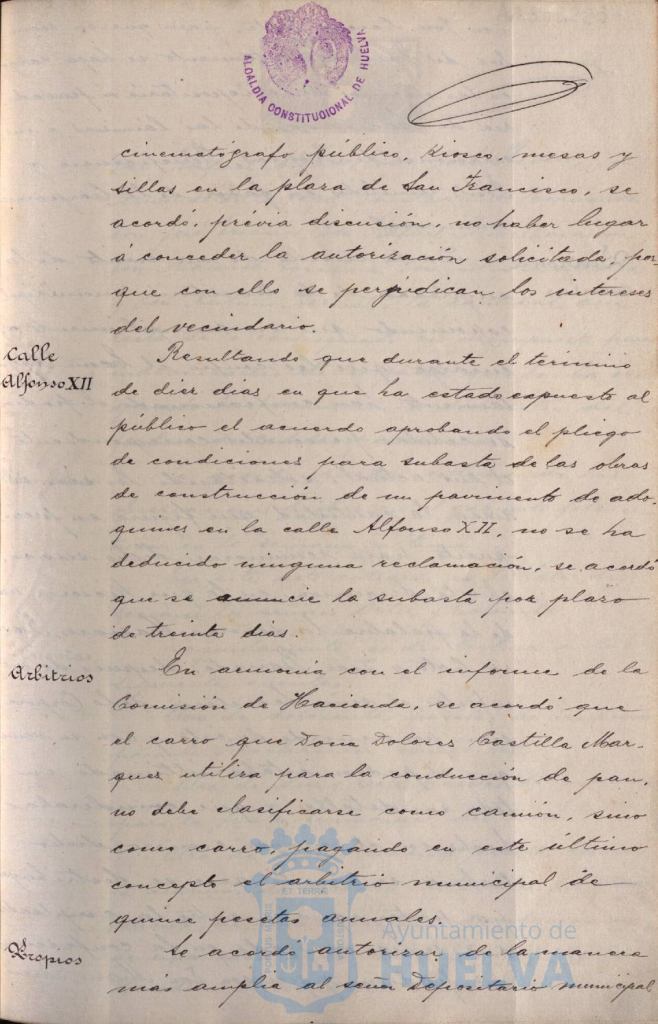 ALCALDIA CONSTITUCIONAL DE HUELVA
cinematógrafo público, kiosco, mesas y
sillas en la plaza de San Francisco, se
acordó, prévia discusión, no haber lugar
á conceder la autorización solicitada, por-
que con ello se perjudican los intereses
del vecindario.
Calle
Alfonso XII
Resultando que durante el termino
de diez dias en que ha estado expuesto al
público el acuerdo aprobando el pliego
de condiciones para subasta de las obras
de construcción de un pavimento de ado-
quines en la calle Alfonso XII, no se ha
deducido ninguna reclamación, se acordó
que se anuncie la subasta por plazo
de treinta dias.
Arbitrios
En armonia con el informe de la
Comisión de Hacienda, se acordó que
el carro que Doña Dolores Castilla Mar-
ques utiliza para la conducción de pan,
no debe clasificarse como camión, sino
como carro, pagando en este último
concepto el arbitrio municipal de
quince pesetas anuales.
Propios
Se acordó autorizar de la manera
más amplia al señor Depositario municipal
Ayuntamiento de
HUELVA